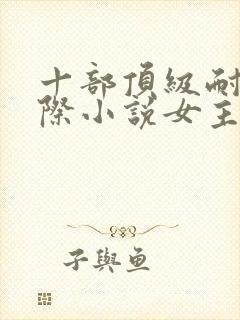 十部頂級耐
際小說女主
子與魚